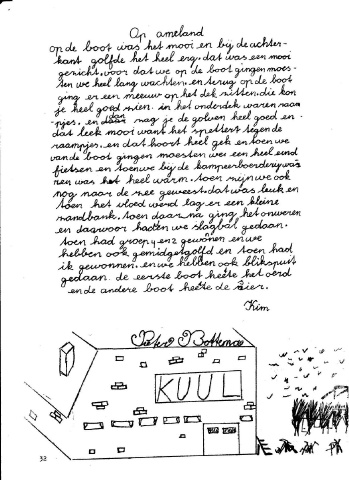 Op ameland
op de boot was het mooi en bij de achter-
kant golfde het heel erg, dat was een mooi
gezicht, voor dat we op de boot gingen moes-
ten we heel lang wachten, en terug op de boot
ging er een meeuw op het dek zitten, die kon
je heel goed zien. in het onderdek waren raam
pjes, en daar zag je de golven heel goed en
dat leek mooi want het spettert tegen de
raampjes, en dat hoort heel gek en toen we
van de boot gingen moesten we een heel eind
fietsen en toen we bij de kampeerboerderij wa-
ren was het heel warm. toen zijn we ook
nog naar de zee geweest, dat was leuk en
toen het vloed werd lag er een kleine
zandbank, toen daar na ging het onweren
en daarvoor hadden we slagbal gedaan.
toen had groep 1 en 2 gewonen en we
hebben ook gemidgetgolfd en toen had
ik gewonnen. en we hebben ook blikspuit
gedaan. de eerste boot heete het oerd
en de andere boot heete de Sier.
Kim
KUUL
32